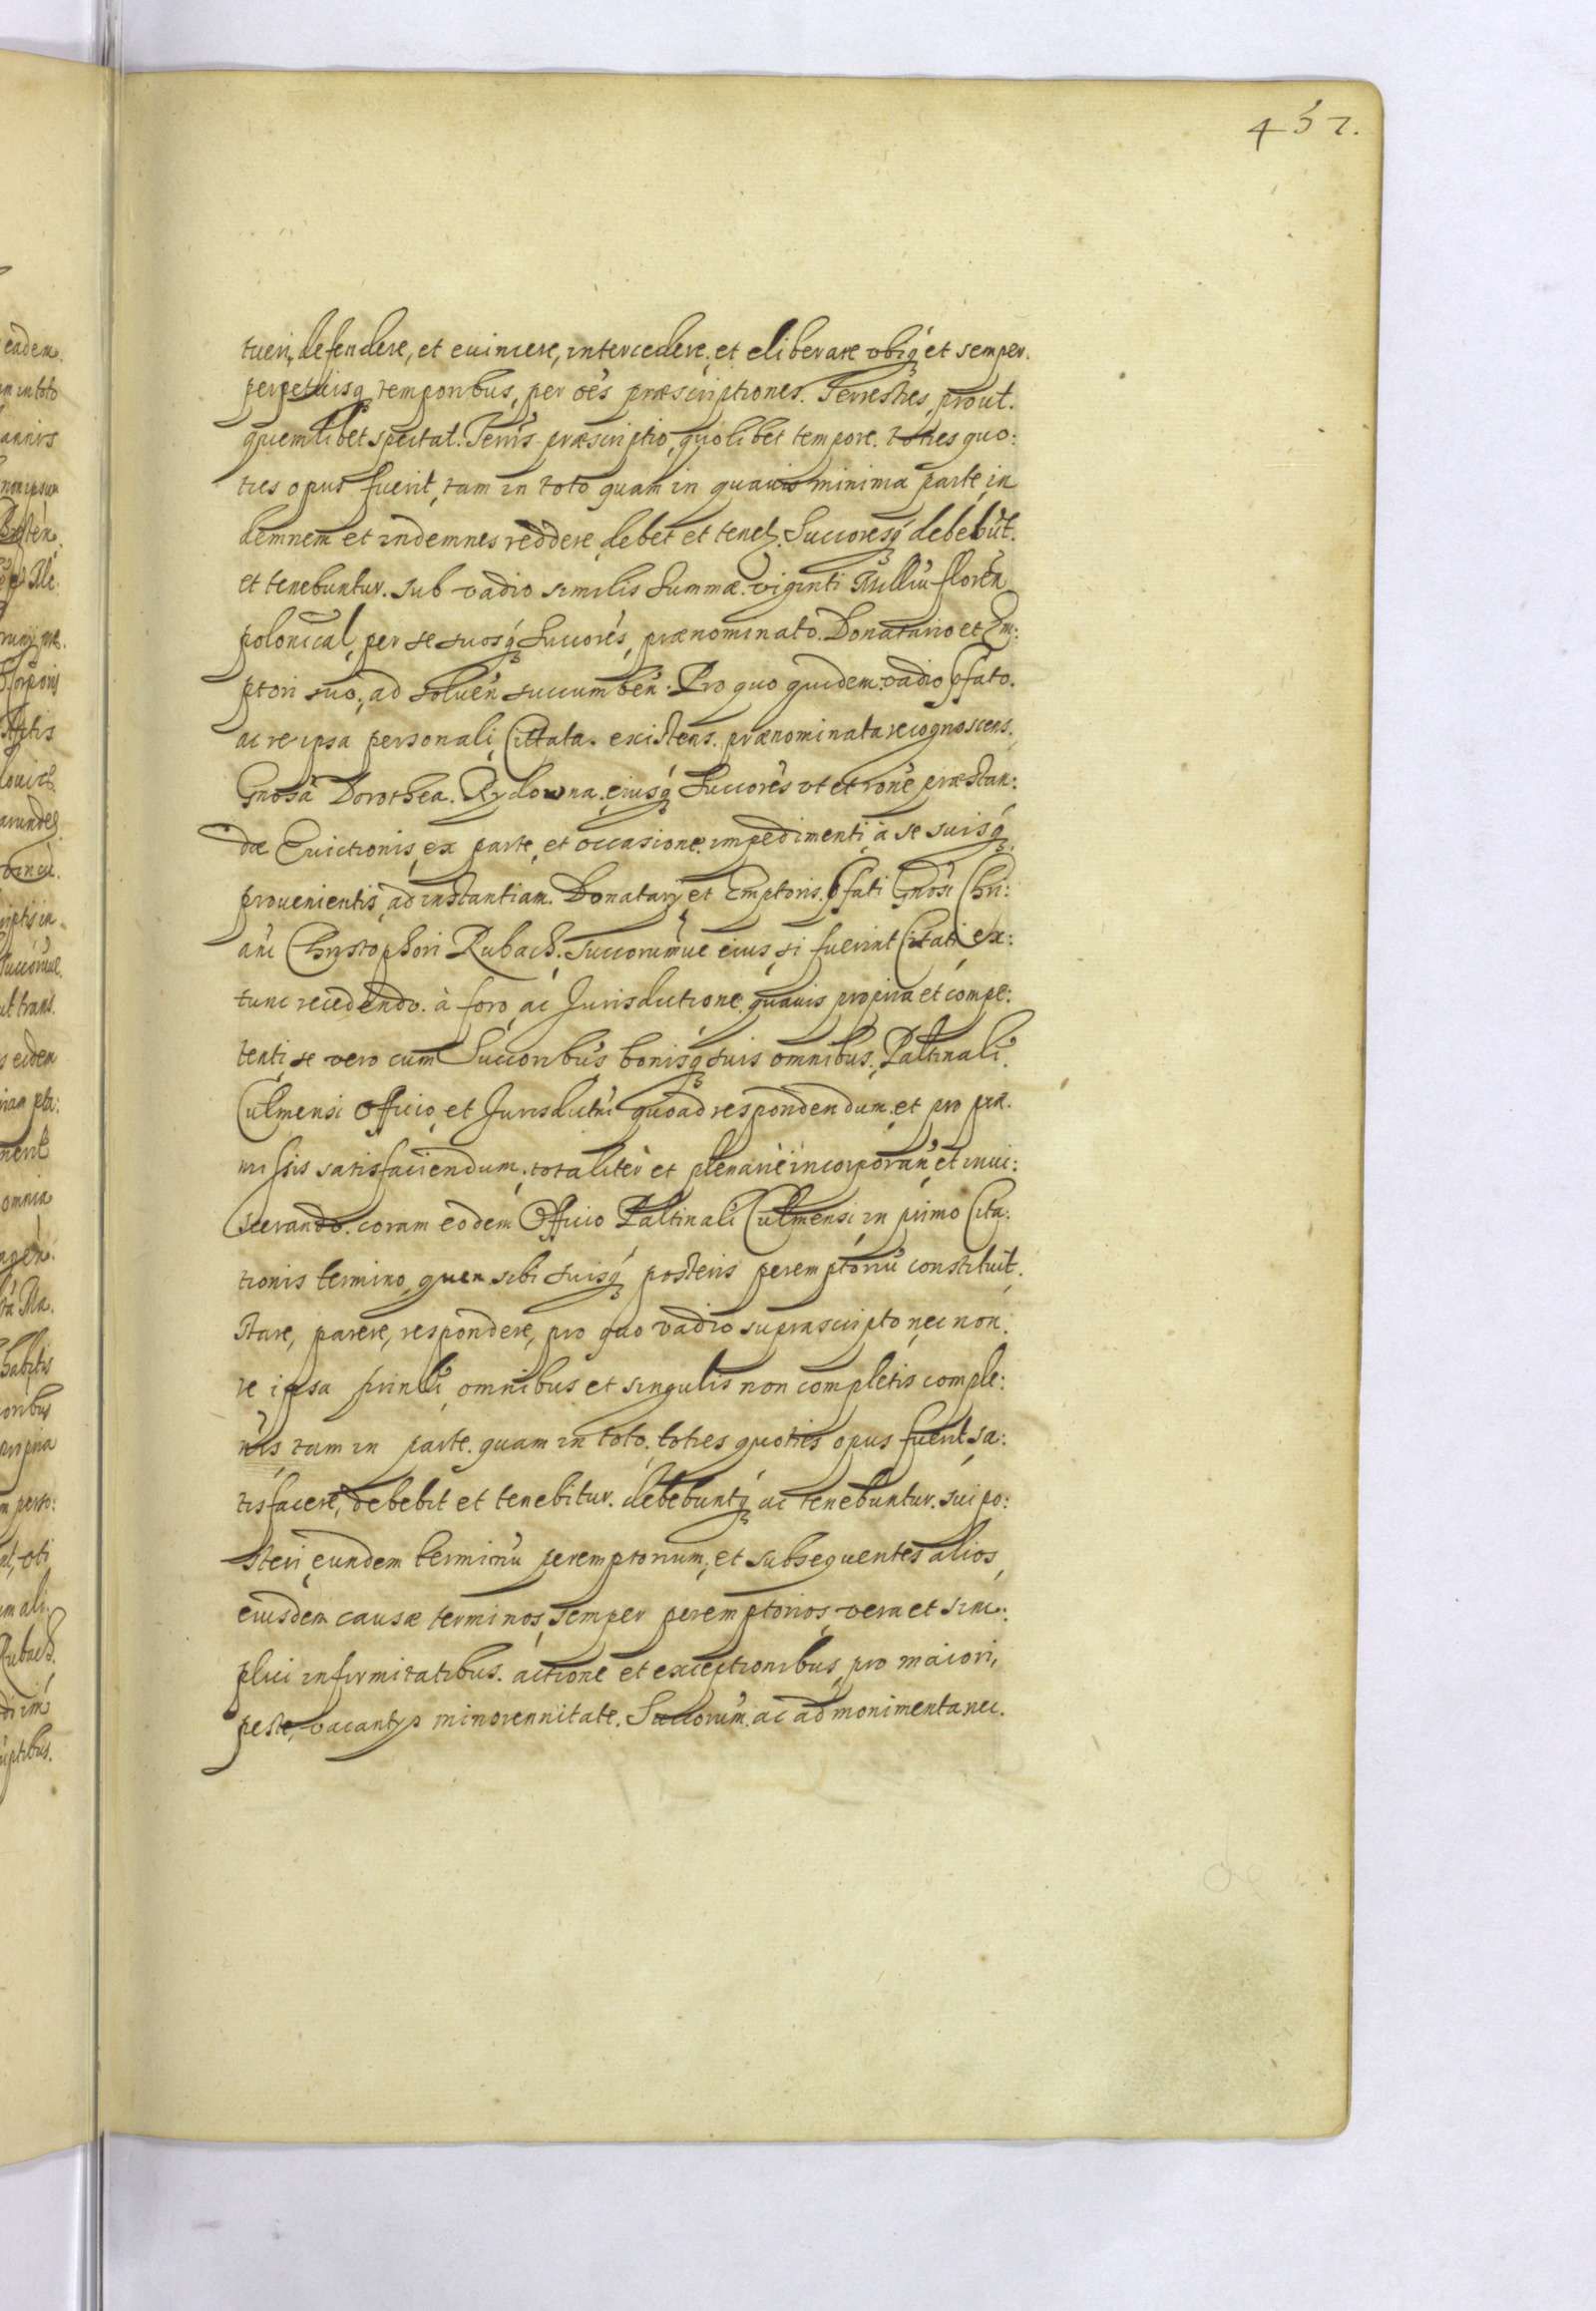 432.
tueri, defendere, et euincere, intercedere, et eliberare vbiq́ et semper.
perpetuisq temporibus, per oẽs præscriptiones. Terrestres, prout.
quemlibet spectat. Terris præscriptio, quolibet tempore. toties quo:
ties opus fuerit, tam in toto quam in quauis minima parte, in
demnem et indemnes reddere, debet et tenet. Succoresq́ debebũt.
et tenebuntur. sub vadio similis Summæ. viginti Milliũ floreñ
polonical, per se suosq́ Succorés, prænominato. Donatario et Em:
ptori suo, ad soluen̄ succumben̄: Pro quo quidem. vadio pfato.
ac re ipsa personali, Cittata. existens. prænominata recognoscens.
Gnosa Dorothea. Rydowna. eiusq́ Succorés vt et rõne præstan:
dæ Euictionis, ex parte, et occasione. impedimenti, à se suisq́.
prouenientis, ad instantiam. Donatarÿ et Emptoris. pfati Gnosi Chri:
ani Chrystophori Rubach. Succorumue eius, si fuerint Citati, ex:
tunc recedendo. à foro, ac Jurisdictione. quauis propria et compe:
tenti, se vero cum Succoribus bonisq́ suis omnibus. Paltinali.
Culmensi Officio, et Jurisdictni quoad respondendum. et pro præ.
missis satisfaciendum, totalitèr et plenarie incorporan̄ et inui:
scerando. coram eodem Officio Paltinali Culmensi in primo Cita:
tionis termino, quem sibi suisq́ posteris peremptoriũ constituit.
Stare, parere, respondere, pro quo vadio suprascripto nec non.
re ipsa prinli, omnibus et singulis non completis comple:
ndis, tam in parte. quam in toto. toties quoties opus fuerit, sa:
tisfacere, debebit et tenebitur. debebuntq́ ac tenebuntur. sui po:
steri, eundem terminũ peremptorium, et subsequentes alios,
eiusdem causæ terminos, semper peremptorios, vera et sim:
plici infirmitatibus. actione et exceptionibus, pro maiori,
peste, vacantÿs minorennitate. Succorum. ac ad monimenta nec.